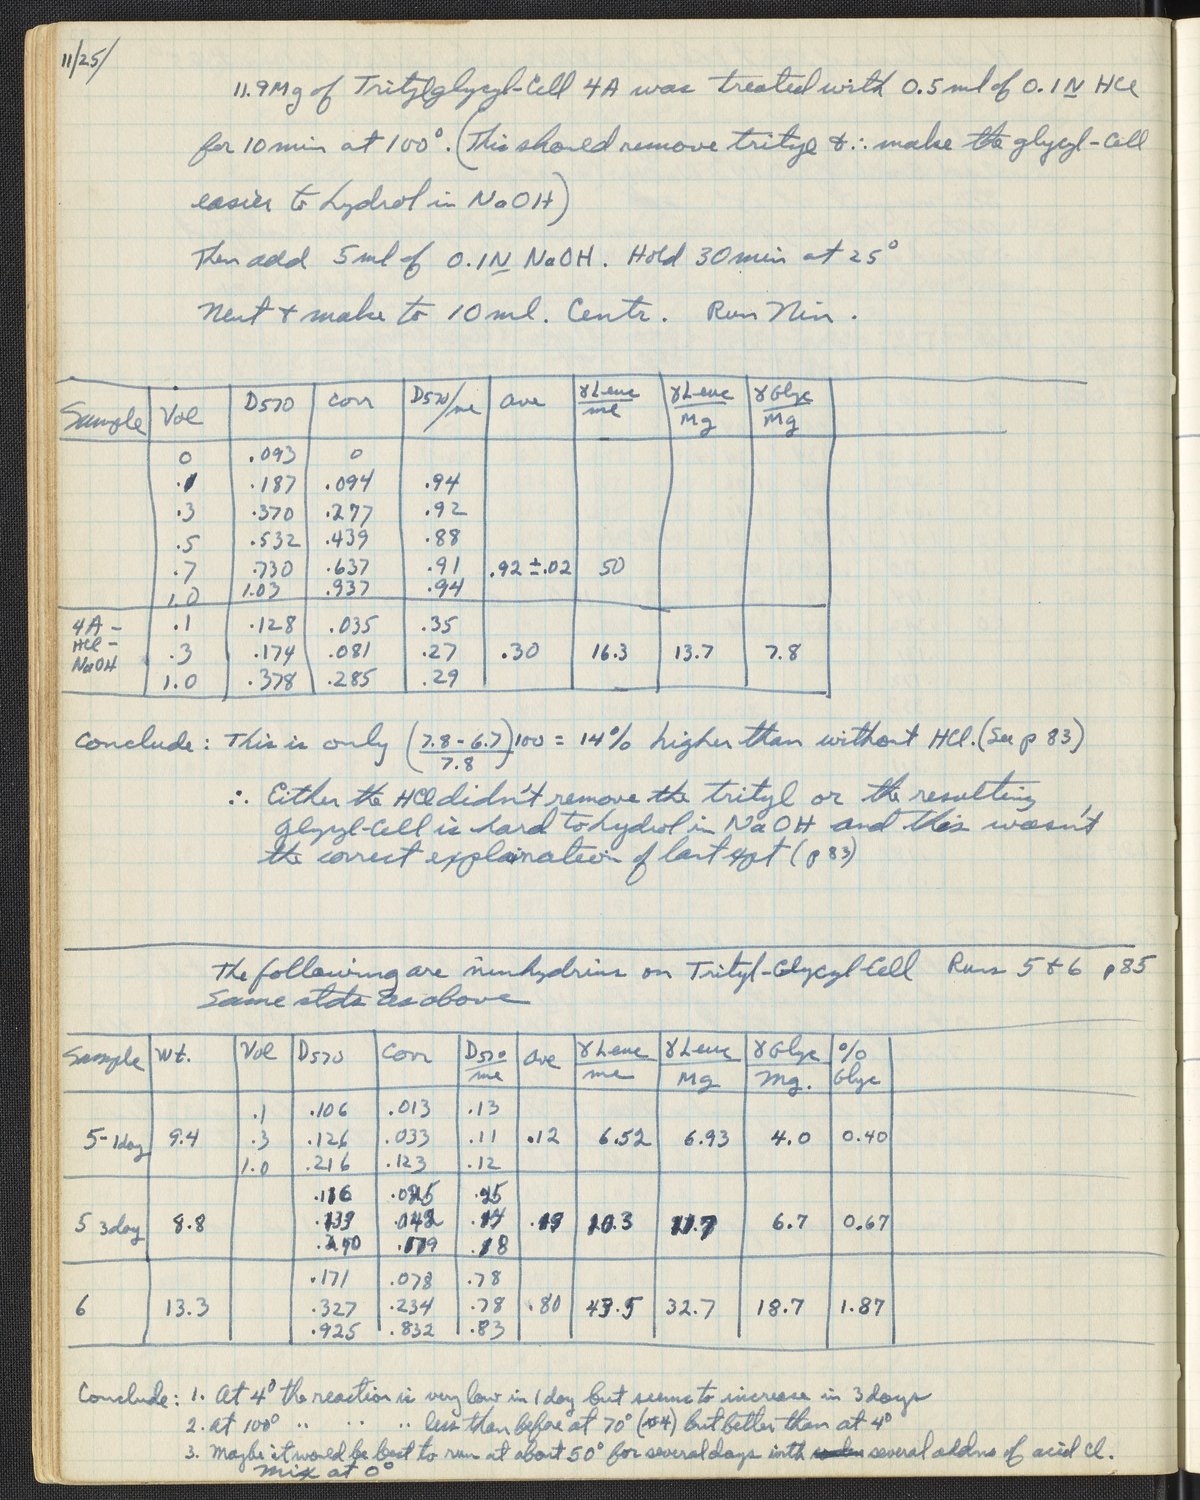 11/25/
11.9 Mg of Tritylglycyl-Cell 4A was treated with 0.5 ml of 0.1 N HCl
for 10 min at 100°. (This should remove trityl & ∴ make the glycyl-Cell
easier to hydrol in NaOH)
Then add 5 ml of 0.1 N NaOH. Hold 30 min at 25°
Neut + make to 10 ml. Centr. Run Nin.
Sample Vol D570 Corr D570/ml ave γLeuc/ml γLeuc/Mg γGlyc/Mg
0 .093 0
.1 .187 .094 .94
.3 .370 .277 .92
.5 .532 .439 .88
.7 .730 .637 .91 .92 ±.02 50
1.0 1.03 .937 .94
4A - .1 .128 .035 .35
HCl - .3 .174 .081 .27 .30 16.3 13.7 7.8
NaOH 1.0 .378 .285 .29
Conclude: This is only (7.8 - 6.7 / 7.8) 100 = 14% higher than without HCl. (See p 83)
∴ Either the HCl didn't remove the trityl or the resulting
glycyl-Cell is hard to hydrol in NaOH and this wasn't
the correct explaination of last expt (p 83)
The following are ninhydrins on Trityl-Glycyl-Cell Runs 5 & 6 p 85
Same stds as above
Sample Wt. Vol D570 Corr D570/ml ave γLeuc/ml γLeuc/Mg γGlyc/Mg. % Glyc
.1 .106 .013 .13
5-1day 9.4 .3 .126 .033 .11 .12 6.52 6.93 4.0 0.40
1.0 .216 .123 .12
.116 .25
5 3day 8.8 .139 .14 .19 10.3 11.7 6.7 0.67
.18
.171 .078 .78
6 13.3 .327 .234 .78 .80 43.5 32.7 18.7 1.87
.925 .832 .83
Conclude: 1. At 4° the reaction is very low in 1 day but seems to increase in 3 days
2. at 100° " " " less than before at 70° (#4) but better than at 4°
3. Maybe it would be best to run at about 50° for several days with several addns of acid Cl.
mix at 0°